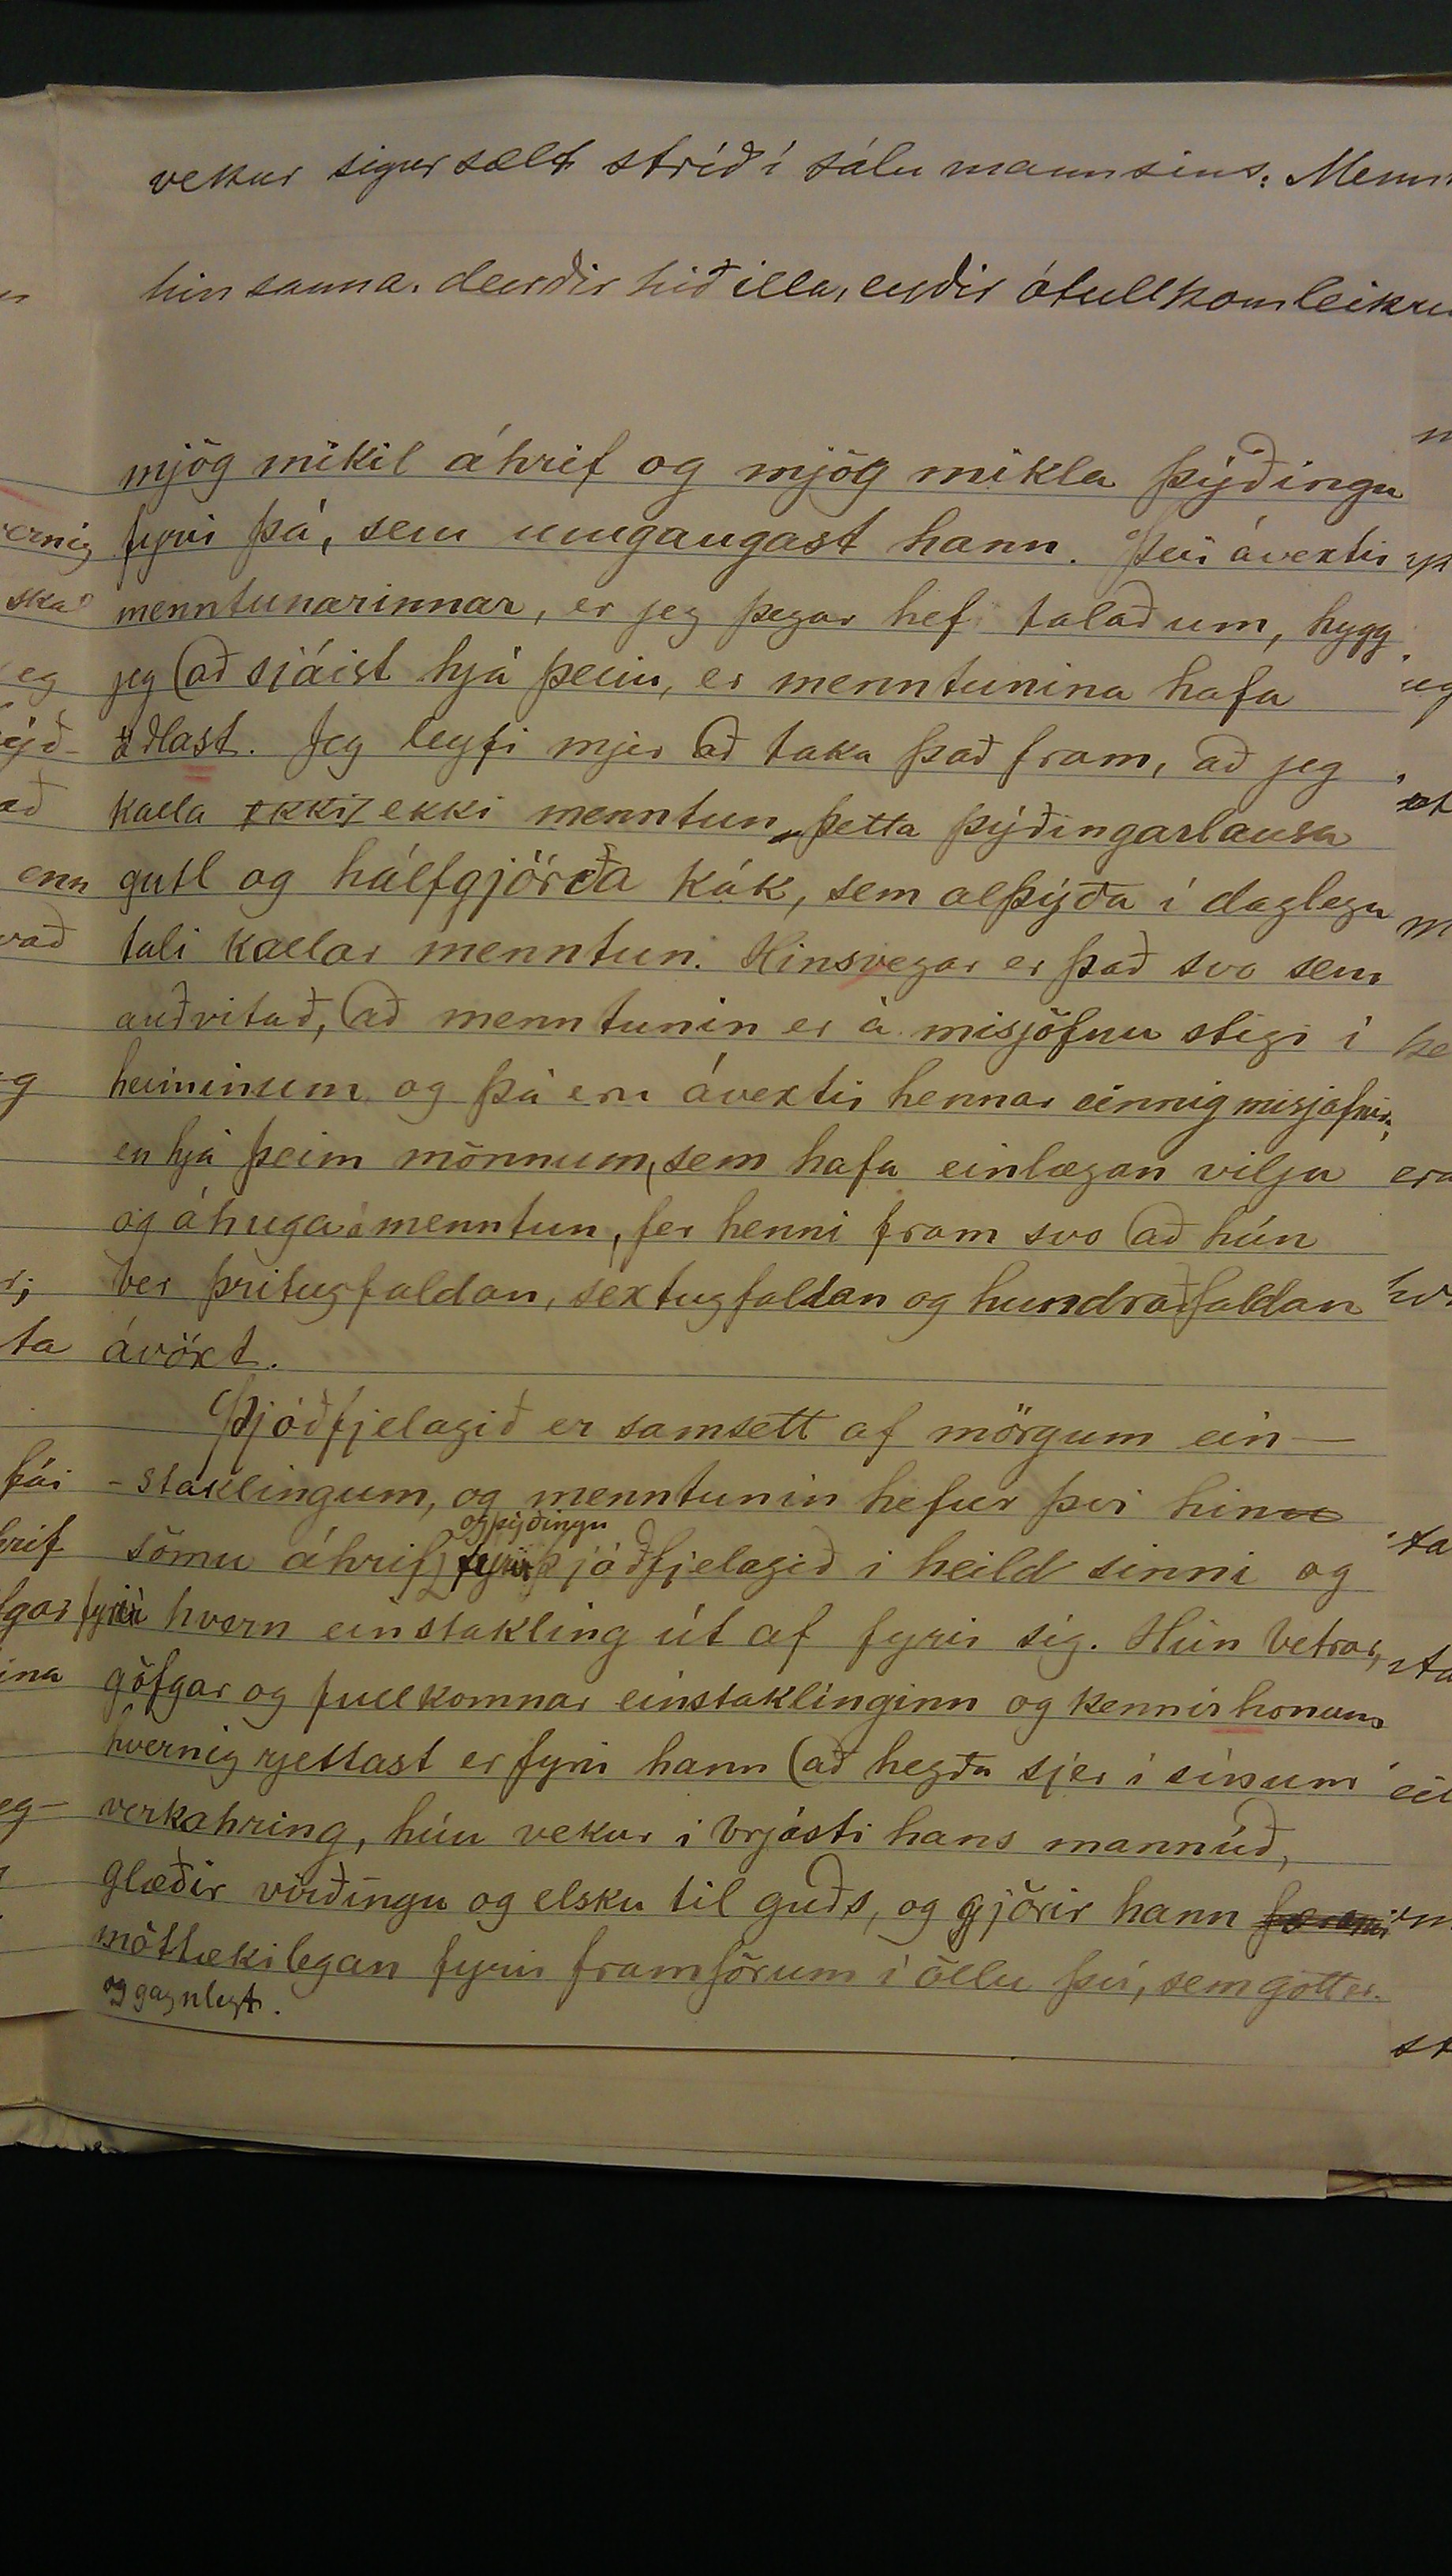 vekur sigursælt stríð í sálu mannsins. Mennt
hin sanna, deyðir hið illa, eyðir ófullkomleiknu
mjög mikil áhrif og mjög mikla þýðingu
fyrir þá, sem umgangast hann. Þeir ávextir
menntunarinnar, er jeg þegar hef talað um, hygg
jeg að sjáist hjá þeim, er menntunina hafa
öðlast. Jeg leyfi mjer að taka það fram, að jeg
kalla ekki ekki menntun, þetta þýðingarlausa
gutl og hálfgjörða kák, sem alþýða í daglegu
tali kallar menntun. Hinsvegar er það svo sem
auðvitað, að menntunin er á misjöfnu stigi í
heiminum og þá eru ávextir hennar einnig misjafnir,
en hjá þeim mönnum, sem hafa einlægan vilja
og áhuga á menntun, fer henni fram svo að hún
ber þrítugfaldan, sextugfaldan og hundraðfaldan
ávöxt.
Þjóðfjelagið er samsett af mörgum ein-
-staklingum, og menntunin hefur því hinu
og þýðingu
sömu áhrif fyrir þjóðfjelagið i heild sinni og
fyrir hvern einstakling út af fyrir sig. Hún betrar,
göfgar og fullkomnar einstaklinginn og kennir honum
hvernig rjettast er fyrir hann að hegða sjer í sínum
verkahring, hún vekur i brjósti hans mannúð,
glæðir virðingu og elsku til guðs, og gjörir hann
móttækilegan fyrir framförum í öllu því, sem gott er
og gagnlegt.